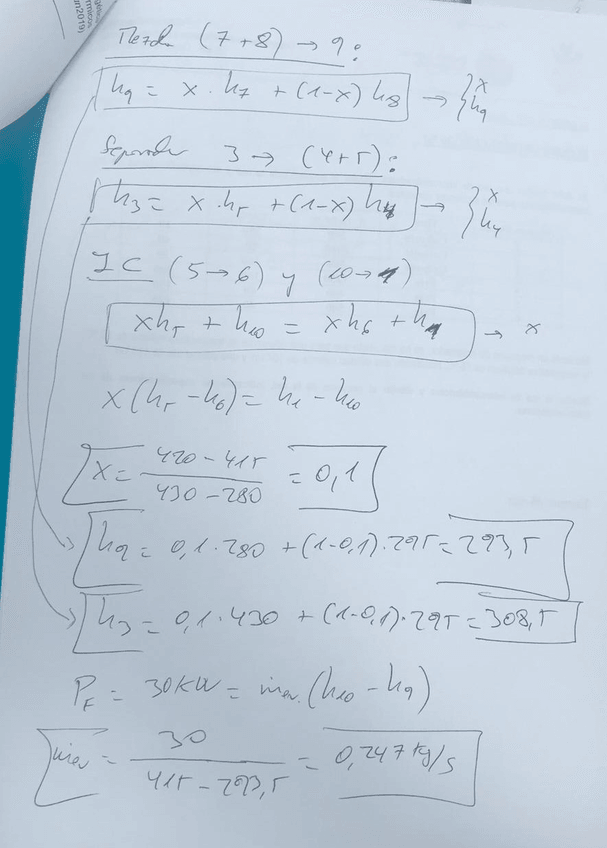 Mezcla (7+8) → 9:
h9 = x · h7 + (1-x) h8 → { x h9
Separador 3 → (4+5):
h3 = x · h5 + (1-x) h4 → { x h4
IC (5→6) y (10→1)
xh5 + h10 = xh6 + h1 → x
x(h5 - h6) = h1 - h10
x = 420 - 415 / 430 - 280 = 0,1
h9 = 0,1 · 280 + (1-0,1) · 295 = 293,5
h3 = 0,1 · 430 + (1-0,1) · 295 = 308,5
PF = 30KW = (h10 - h9)
= 30 / 415 - 293,5 = 0,247 kg/s